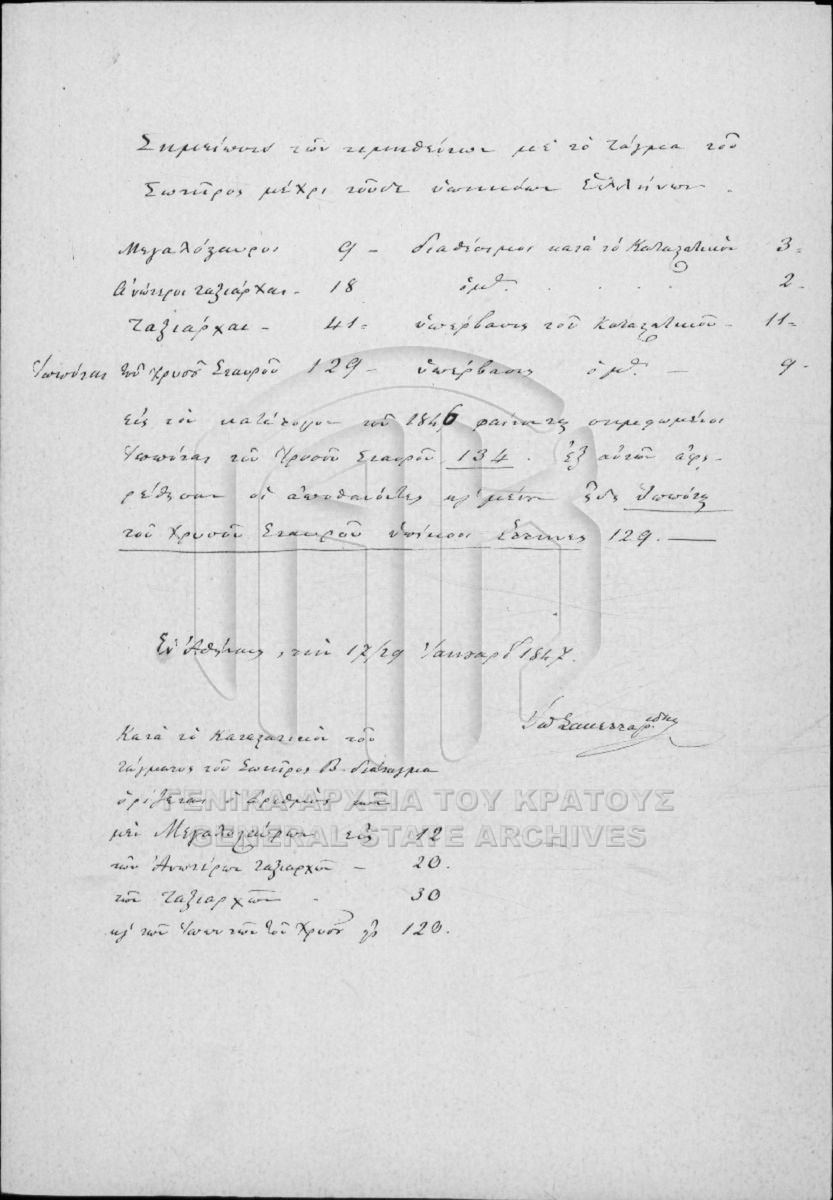 Σημείωσις τῶν τιμηθέντων μὲ τὸ Τάγμα τοῦ
Σωτῆρος μέχρι τοῦδε ὑπηκόων Ἑλλήνων.
Μεγαλόσταυροι 9 – διαθέσιμοι κατὰ τὸ Καταστατικὸν 3 -
Ἀνώτεροι ταξιάρχαι - 18 ὁμθ. . . . 2 -
Ταξιάρχαι - 41 - ὑπέρβασις τοῦ Καταστατικοῦ - 11 -
Ἱππόται τοῦ χρυσοῦ Σταυροῦ 129 – ὑπέρβασις ὁμθ. – 9 -
εἰς τὸν κατάλογον τοῦ 1846 φαίνονται σημειωμένοι
Ἱππόται τοῦ Χρυσοῦ Σταυροῦ 134. ἐξ αὐτῶν ἀφῃ-
ρέθησαν οἱ ἀποθανόντες κ μένουν Ἱππόται
τοῦ Χρυσοῦ Σταυροῦ ὑπήκοοι Ἕλληνες 129. —
Ἐν Ἀθήναις, τὴν 17/29 Ἰανουαρ 1847.
Κατὰ τὸ Καταστατικὸν τοῦ
τάγματος τοῦ Σωτῆρος Β. διάταγμα
ὁρίζεται ὁ ἀριθμὸς τῶν
μὲν Μεγαλοσταύρων εἰς 12
τῶν Ἀνωτέρων ταξιαρχῶν – 20.
τῶν Ταξιαρχῶν . 30
κ τῶν Ἱπποτῶν τοῦ Χρυσ 120.
ΓΕΝΙΚΑ ΑΡΧΕΙΑ ΤΟΥ ΚΡΑΤΟΥΣ
GENERAL STATE ARCHIVES